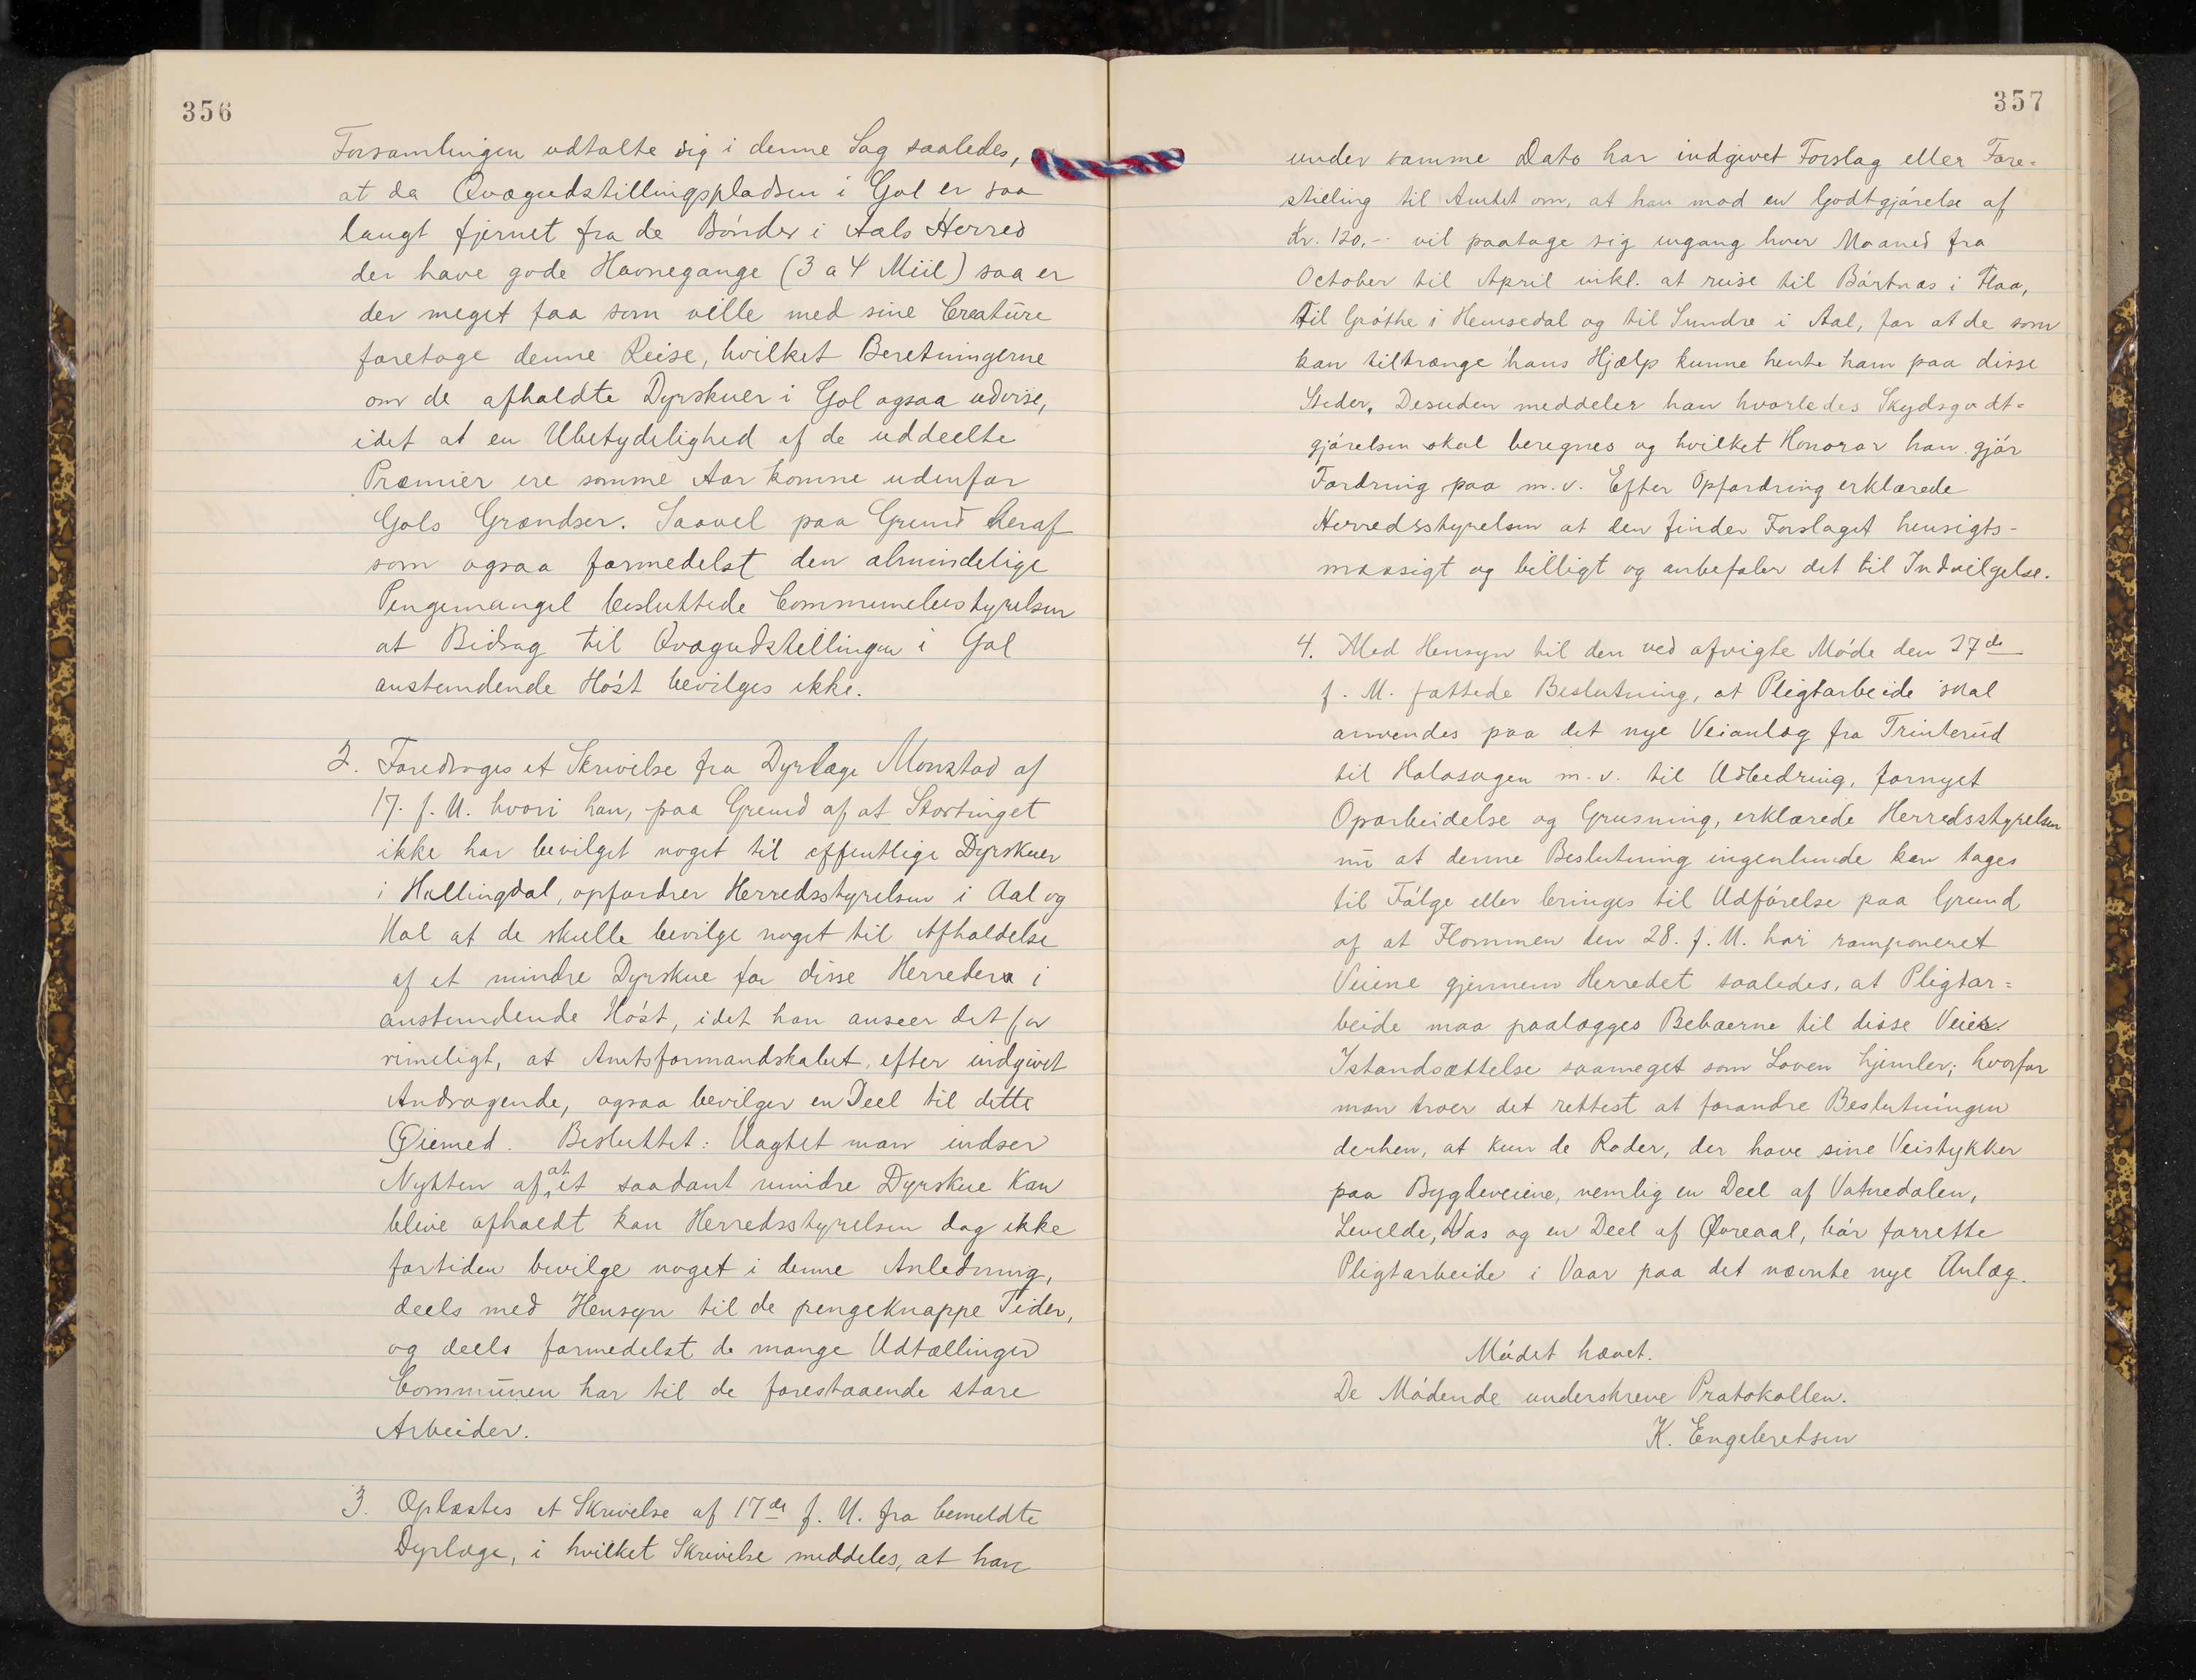 356
Forsamlingen udtalte sig i denne Sag saaledes,
at da Qvægudstillingspladsen i Gol er saa
langt fjernet fra de Bønder i Aals Herred
der have gode Havnegange (3 a 4 Miil) saa er
der meget faa som ville med sine Creature
foretage denne Reise, hvilket Beretningerne
om de afholdte Dyrskuer i Gol ogsaa udvise,
idet at en Ubetydelighed af de uddeelte
Præmier ere somme Aar komne udenfor
Gols Grændser. Saavel paa Grund heraf
som ogsaa formedelst den almindelige
Pengemangel besluttede Communebestyrelsen
at Bidrag til Qvægudstillingen i Gol
anstundende Høst bevilges ikke.
2. Foredroges et Skrivelse fra Dyrlæge Monstad af
17. f. M. hvori han, paa Grund af at Stortinget
ikke har bevilget noget til offentlige Dyrskuer
i Hallingdal, opfordrer Herredsstyrelsen i Aal og
Hol at de skulle bevilge noget til Afholdelse
af et mindre Dyrskue for disse Herreder i
anstundende Høst, idet han anseer det for
rimeligt, at Amtsformandskabet, efter indgivet
Andragende, ogsaa bevilger en Deel til dette
Øiemed. Besluttet: Uagtet man indser
Nytten af at et saadant mindre Dyrskue kan
blive afholdt kan Herredsstyrelsen dog ikke
fortiden bevilge noget i denne Anledning,
deels med Hensyn til de pengeknappe Tider,
og deels formedelst de mange Udtællinger
Communen har til de forestaaende store
Arbeider.
3. Oplæstes et Skrivelse af 17de f. M. fra bemeldte
Dyrlæge, i hvilket Skrivelse meddeles, at han
357
under samme Dato har indgivet Forslag eller Fore=
stilling til Amtet om, at han mod en Godtgjørelse af
Kr. 120,-- vil paatage sig engang hver Maaned fra
October til April inkl. at reise til Børtnæs i Flaa,
til Grøthe i Hemsedal og til Sundre i Aal, for at de som
kan tiltrænge hans Hjælp kunne hente ham paa disse
Steder, Desuden meddeler han hvorledes Skydsgodt=
gjørelsen skal beregnes og hvilket Honorar han gjør
Fordring paa m. v. Efter Opfordring erklærede
Herredsstyrelsen at den finder Forslaget hensigts-
mæssigt og billigt og anbefaler det til Indvilgelse.
4. Med Hensyn til den ved afvigte Møde den 27de
f. M. fattede Beslutning, at Pligtarbeide skal
anvendes paa det nye Veianlæg fra Trinterud
til Holosagen m. v. til Udbedring, fornyet
Oparbeidelse og Grusning, erklærede Herredsstyrelsen
nu at denne Beslutning ingenlunde kan tages
til Følge eller bringes til Udførelse paa Grund
af at Flommen den 28. f. M. har ramponeret
Veiene gjennem Herredet saaledes, at Pligtar=
beide maa paalægges Beboerne til disse Veies
Istandsættelse saameget som Loven hjemler; hvorfor
man troer det rettest at forandre Beslutningen
derhen, at kun de Roder, der have sine Veistykker
paa Bygdeveiene, nemlig en Deel af Vatnedalen,
Levelde, Næs og en Deel af Øvreaal, bør forrette
Pligtarbeide i Vaar paa det nævnte nye Anlæg.
Mødet hævet.
De Mødende underskreve Protokollen.
K. Engebretsen